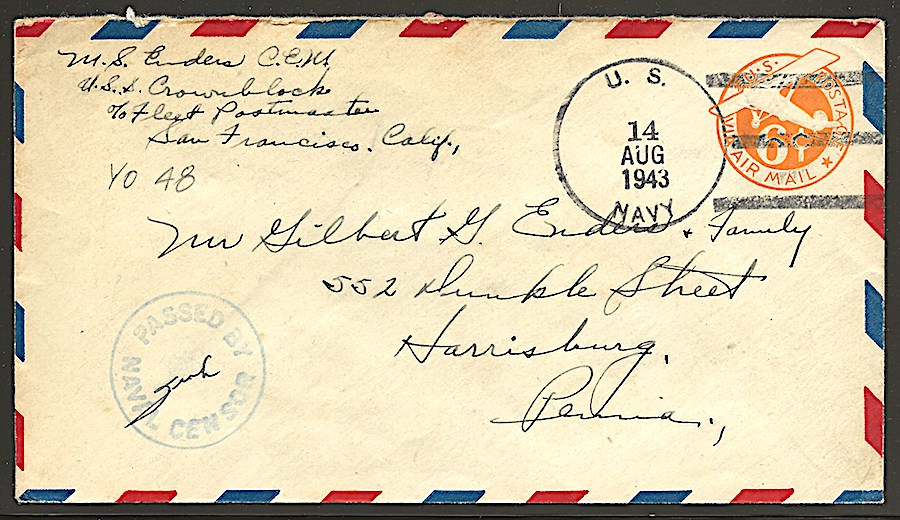 M. S. Enders C.E.M.
U.S.S. Crownblock
c/o Fleet Postmaster
San Francisco, Calif.,
YO 48
U. S.
14
AUG
1943
NAVY
U.S. POSTAGE
6¢
VIA AIR MAIL
Mr Gilbert G. Enders + Family
552 Dunkle Street
Harrisburg,
Penna.,
PASSED BY
NAVAL CENSOR